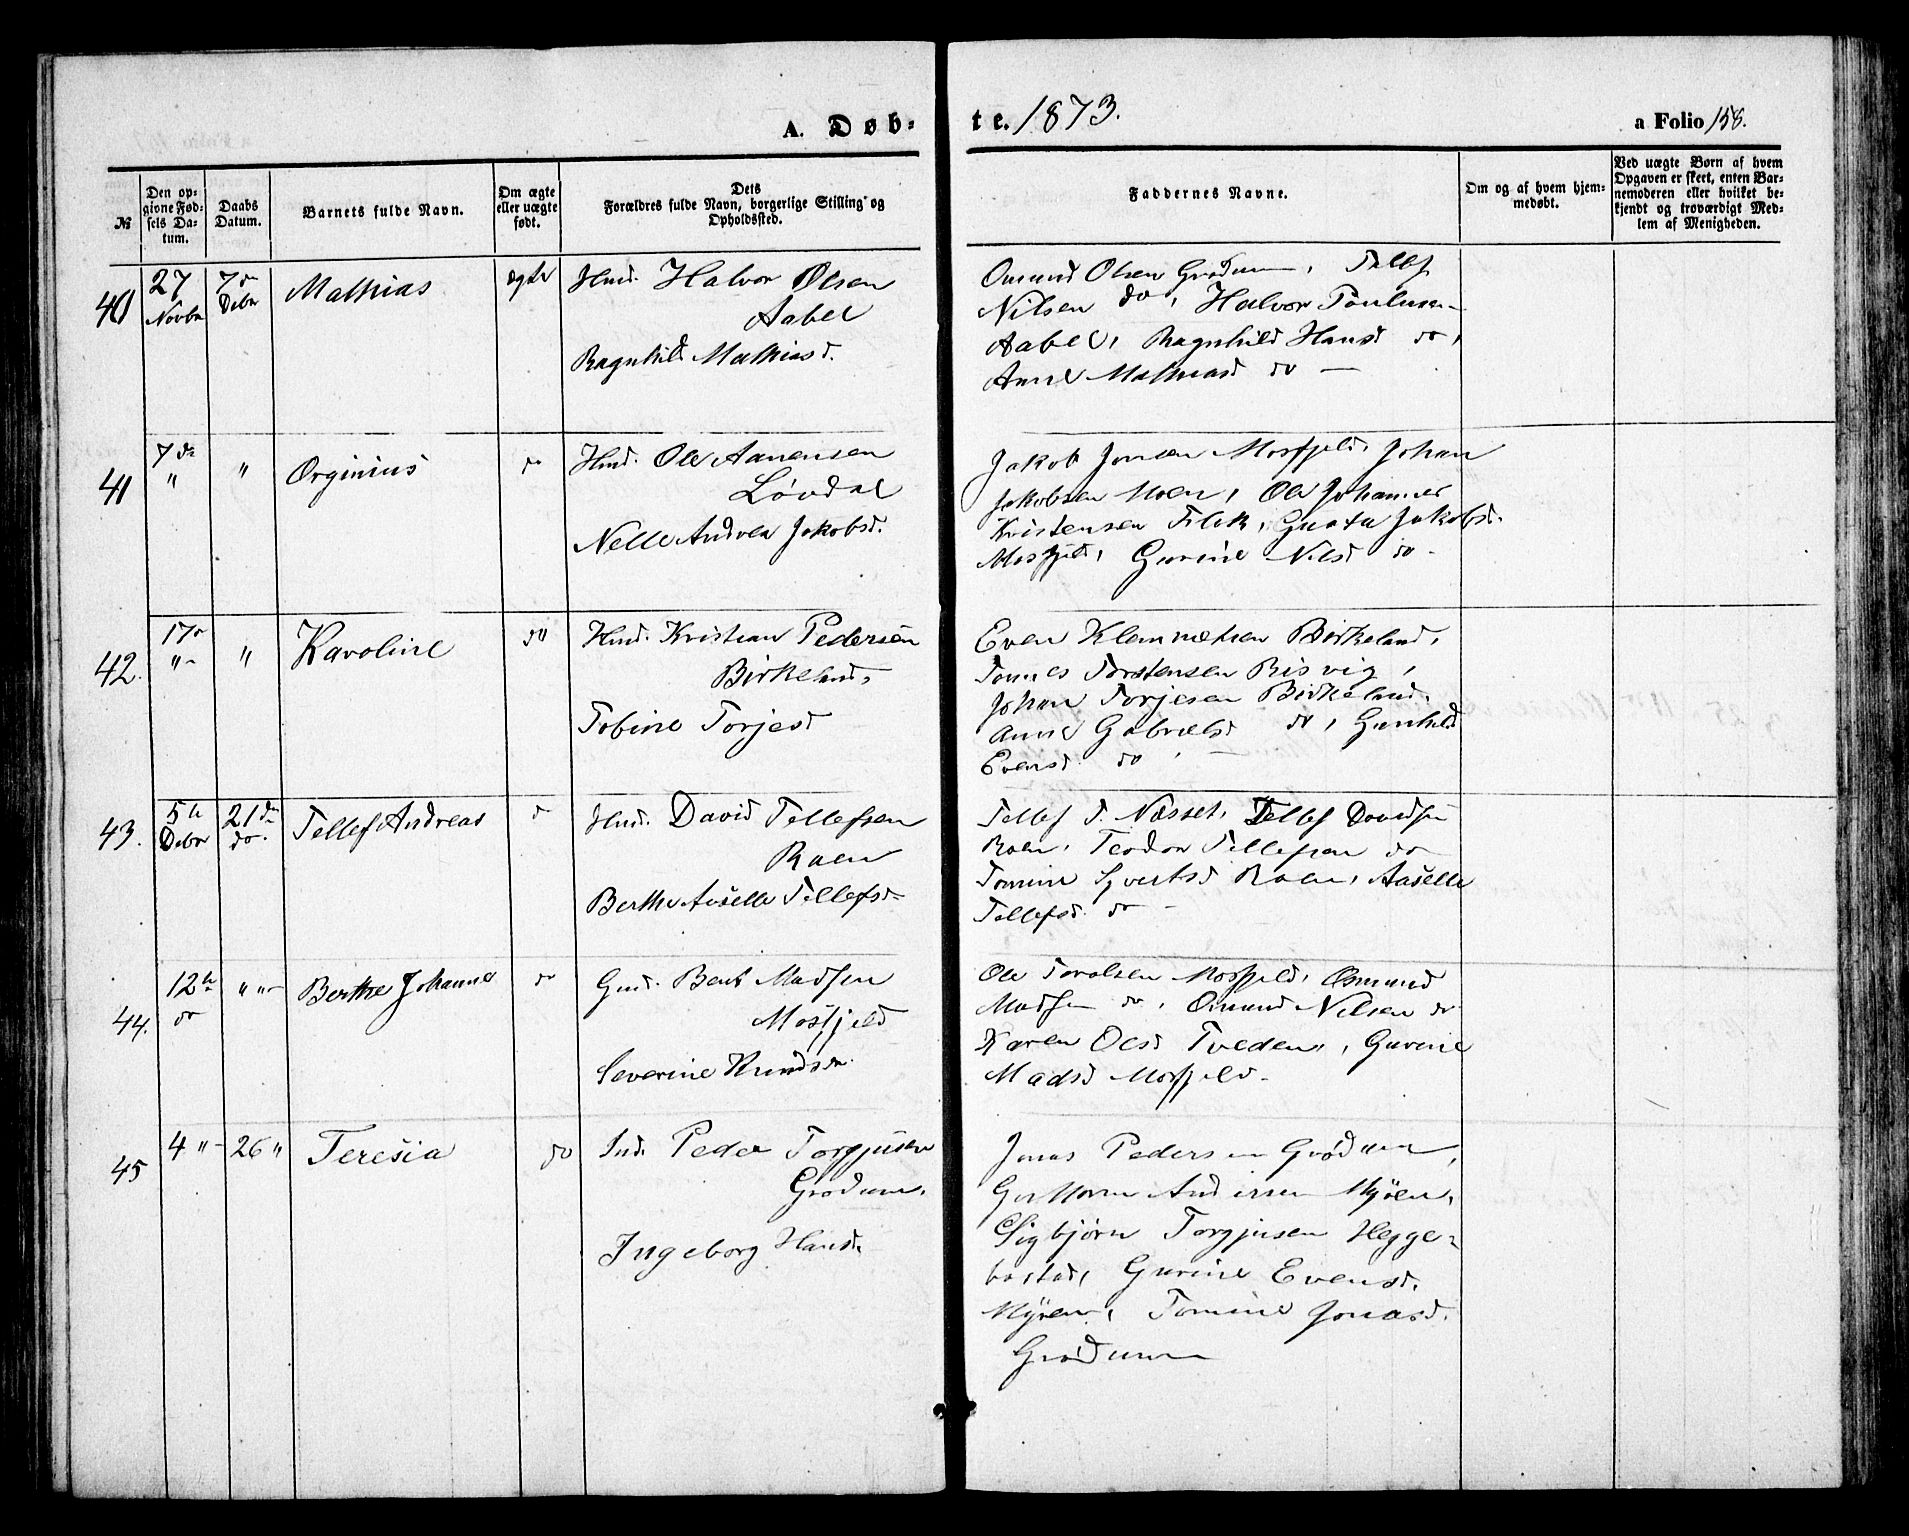 A. Døb=
te. 1873.
a Folio 158.
№
Den op=
givne Fød=
sels Da=
tum.
Daabs
Datum.
Barnets fulde Navn.
Om ægte
eller uægte
født.
Dets
Forældres fulde Navn, borgerlige Stilling og
Opholdssted.
Faddernes Navne.
Om og af hvem hjem=
medøbt.
Ved uægte Børn af hvem
Opgaven er skeet, enten Bar=
nemoderen eller hvilket be=
kjendt og troværdigt Med=
lem af Menigheden.
40
27
Novbr
7de
Debr
Mathias
ægte
Hmd. Halvor Olsen
Aabel
Ragnhild Mathiasd.
Omund Olsen Grødum, Tellef
Nilsen do, Halvor Poulsen
Aabel, Ragnhild Hansd do,
Anne Mathiasd do —
41
7de
"
"
Orginius
do
Hmd. Ole Aanensen
Løvdal
Nelle Andrea Jakobsd.
Jakob Jonsen Mosfjeld, Johan
Jakobsen Moen, Ole Johannes
Kristensen Flek, Gusta Jakobsd.
Mosfjeld, Gurine Nilsd do -
42.
17de
"
"
Karoline
do
Hmd. Kristian Pedersen
Birkeland,
Tobine Torjesd
Even Klemmetsen Birkeland,
Tønnes Torstensen Risvig,
Johan Torjesen Birkeland.
Anne Gabrielsd do, Gunhild
Evensd. do
43.
5te
Debr
21de
do.
Tellef Andreas
do
Hmd. David Tellefsen
Roen
Berthe Aaselle Tellefsd
Tellef T. Næsset, Tellef Davidsen
Roen, Teodor Tellefsen do
Tomine Syvertsd Roen, Aaselle
Tellefsd. do -
44.
12te
do
" "
Berthe Johanne
do
Gmd. Bent Madsen
Mosfjeld
Severine Knudsdr.
Ole Tarolsen Mosfjeld, Osmund
Madsen do, Omund Nilsen do
Karen Olsd Tveden, Gurine
Madsd Mosfjeld -
45
4 "
26 "
Teresia
do
Ind. Peder Torgjusen
Grødum,
Ingeborg Hansd.
Jonas Pedersen Grødum,
Guttorm Andersen Myren,
Sigbjørn Torgjusen Hegge=
bostad, Gurine Evensd.
Myren, Tomine Jonasd.
Grødum